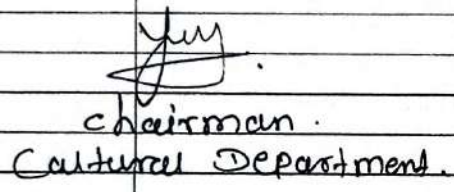 chairman.
Cultural Department.